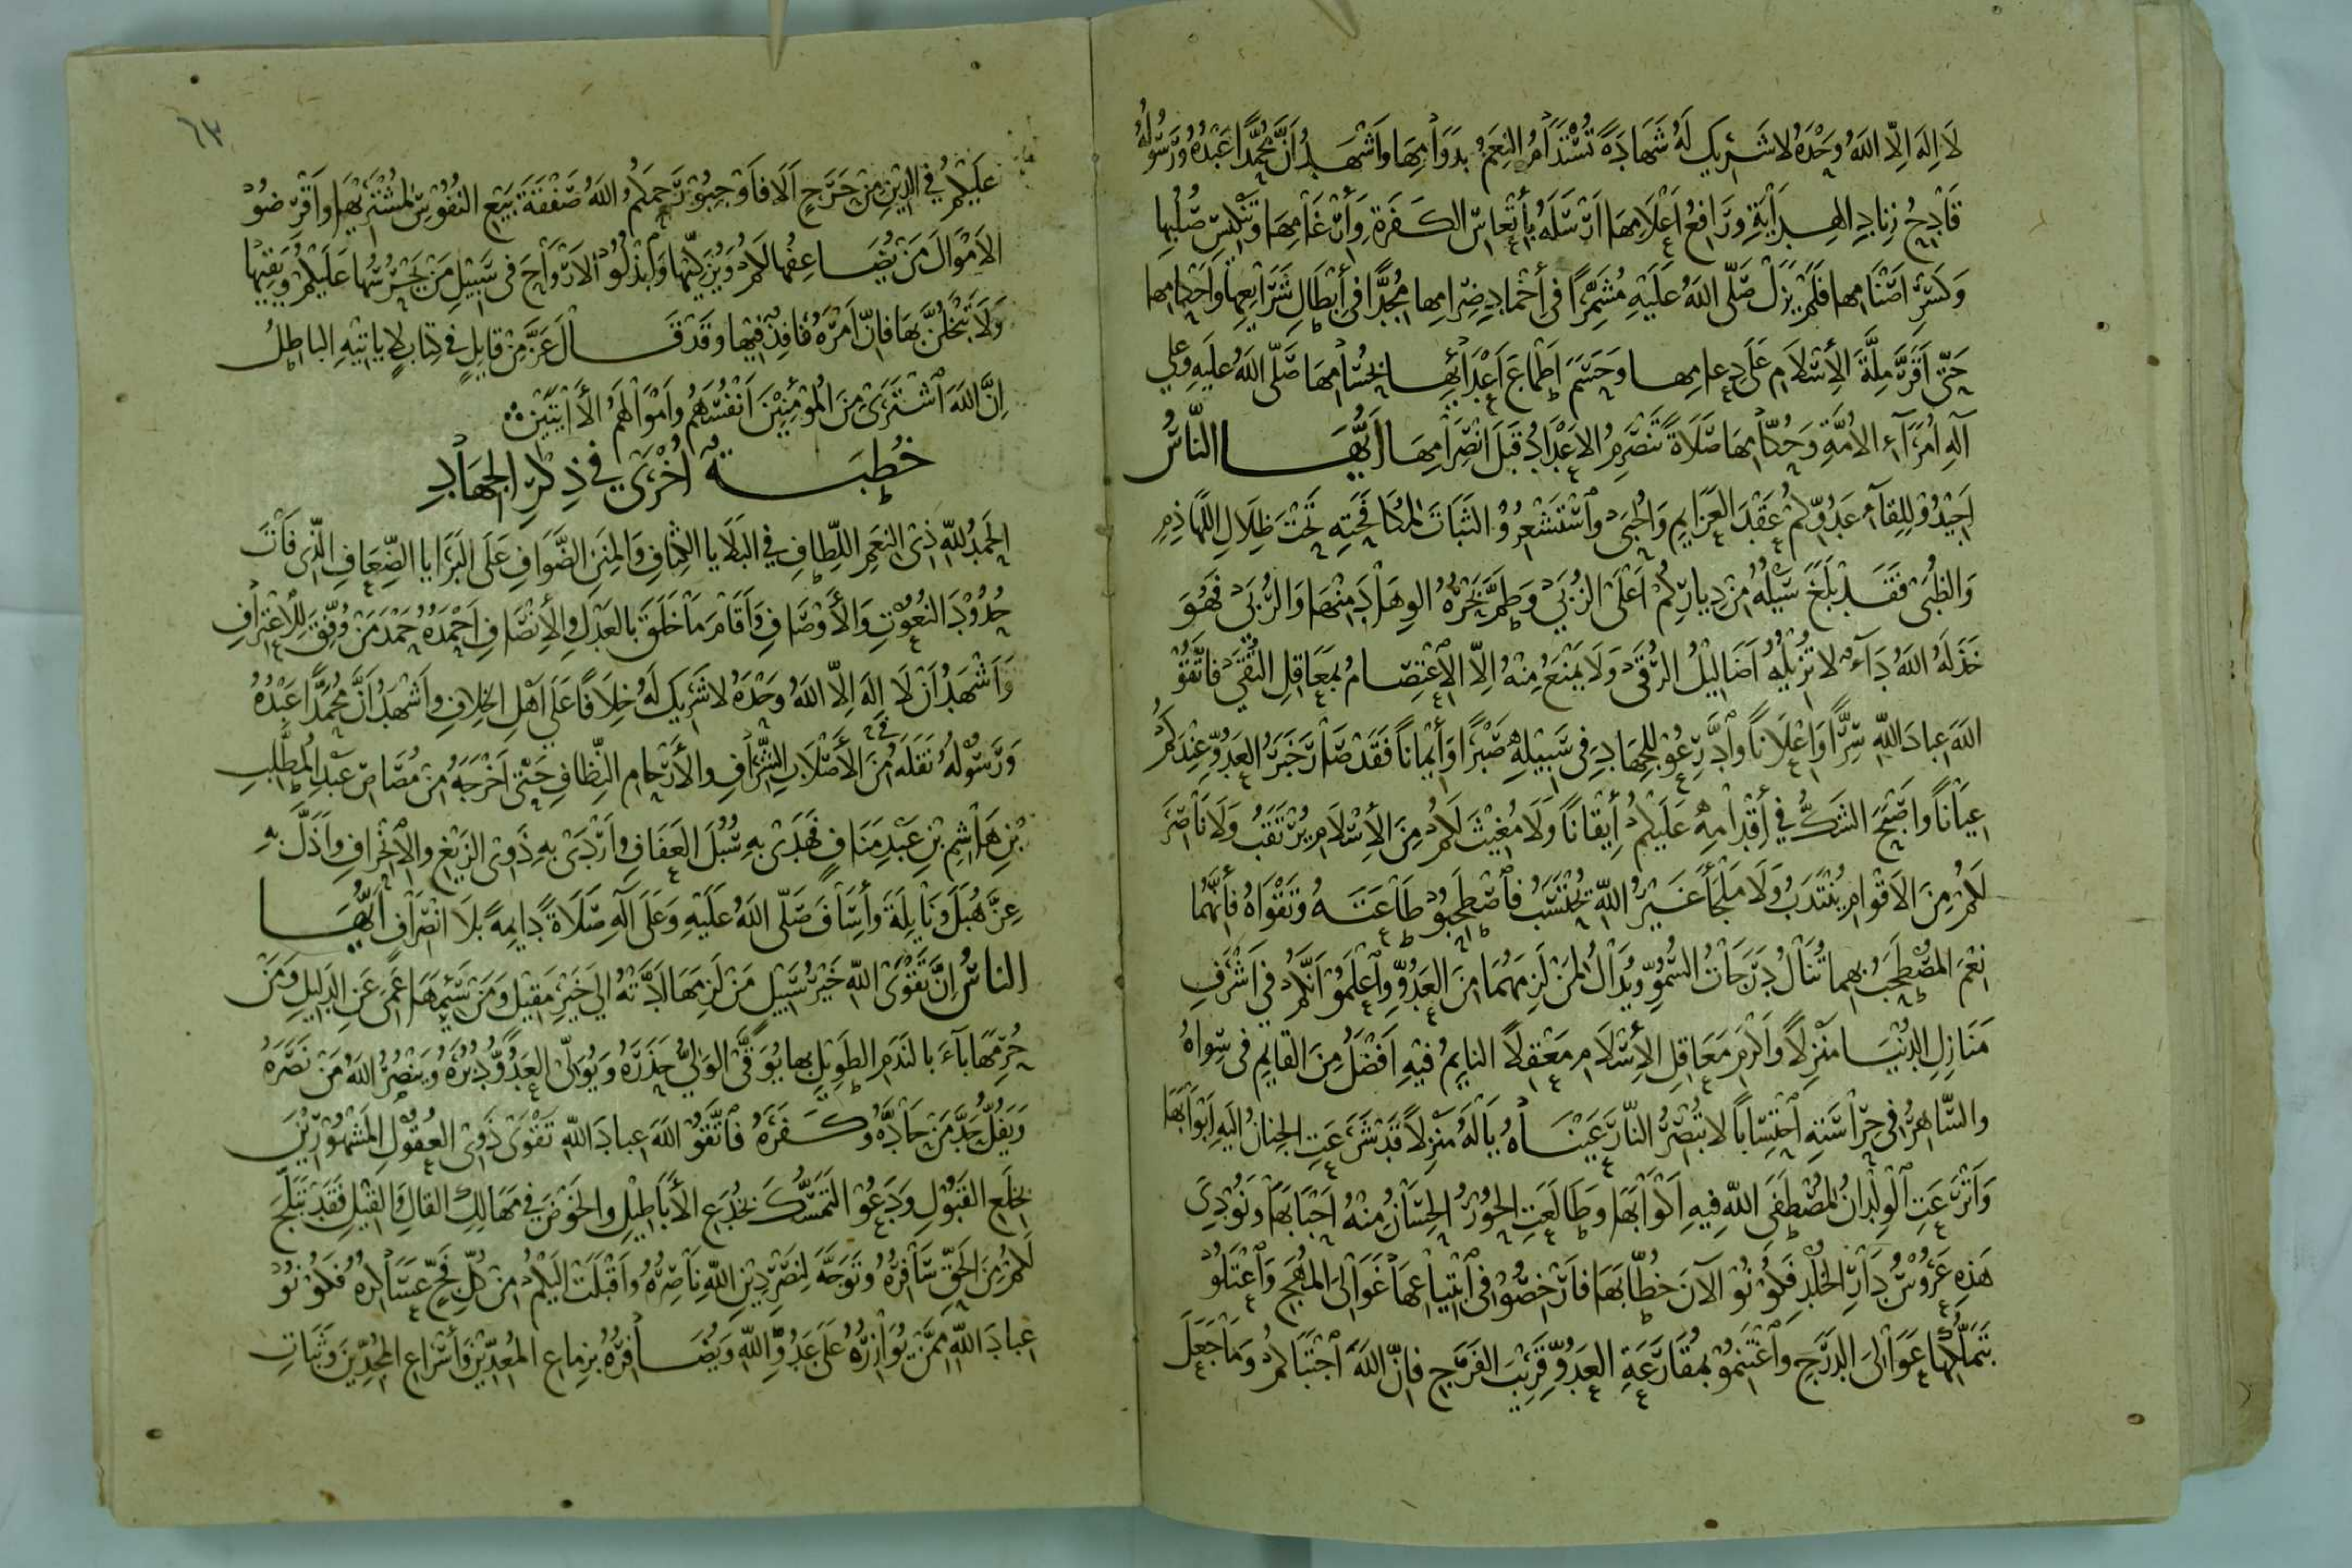 لَا اِلَهَ اِلَّا اللَّهُ وَحْدَهُ لا شَرِيكَ لَهُ شَهَادَةً تُسْتَدَامُ النِعَمُ بِدَوَامِهَا وَاَشْهَدُ اَنَّ مُحَمَّدًا عَبْدُهُ وَرَسُولُهُ
قَادِحُ زِنَادِ الهِدَايَةِ وَرَافِعُ اَعْلَامِهَا اَرْسَلَهُ بِأِتْعَاسِ الكَفَرَةِ وَأِرْغَامِهَا وَتَنْكِيسِ صُلُبِهَا
وَكَسْرِ اَصْنَامِهَا فَلَمْ يَزَلْ صَلَّى اللَّهُ عَلَيْهِ مُشَمِّرًا فِي أِخْمَادِ ضِرَامِها مُجِدًّا فِي أِبْطَالِ شَرَايِعِهَا وَاَحْكَامِهَا
حَتَّى اَقَرَّ مِلَّةَ الأِسْلَامِ عَلَى دِعَامِها وَحَسَمَ اَطْمَاعَ اَعْدَائِهَا بِحُسَامِهَا صَلَّى اللَّهُ عَلَيهِ وعلى
آلِهِ اُمَرَآءِ الاُمَّةِ وَحُكَّامِهَا صَلَاةً تَنْصَرِمُ الاَعْدَادُ قَبْلَ انْصِرَامِهَا اَيُّهَا النَّاسُ
اَجِيْدُوْ لِلِقآءِ عَدُوِّكُمْ عَقْدَ العَزَايِمِ وَالحُبَى وَاَسْتَشْعِرُوْ الثَبَاتَ لمُكَافَحَتِهِ تَحْتَ ظِلَالِ اللَّهَاذِمِ
وَالظُبَى فَقَدْ بَلَغَ سَيْلُهُ مِنْ دِيارِكُمْ اَعْلَى الزُبَى وَطَمَّ بَحْرُهُ الوِهَادَ مِنْهَا وَالرُبَى فَهُوَ
خَذَلَهُ اللَّهُ دَآءٌ لا تُزِيلُهُ اَضَالِيْلُ الرُقَى وَلَا يَمْنَعُ مِنْهُ اِلَّا الاِعْتِصَامُ بِمَعَاقِلِ التُقَى فَاتَّقُوْ
اللَّهَ عِبادَ اللَّهِ سِرًّا وَاِعْلَانًا وَادَّرِعُوْ لِلجِهَادِ فِي سَبِيْلِهِ صَبْرًا وَأِيْمانًا فَقَدْ صَارَ خَبَرُ العَدُوِّ عِنْدَكُمْ
عِيَانًا وَاَصْبَحَ الشَكُّ فِي أِقْدَامِهِ عَلَيْكُمْ أِيْقَانًا وَلَا مُغِيْثَ لَكُمْ مِنَ الأِسْلَامِ يُرْتَقَبُ وَلَا نَاصِرَ
لَكُمْ مِنَ الاَقْوَامِ يُنْتَدَبُ وَلَا مَلْجَأَ غَيْرُ اللَّهِ يُحْتَسَبُ فَاصْطَحِبُوْ طَاعَتَهُ وَتَقْوَاهُ فَأنَّهُمَا
نِعْمَ المُصْطَحَبُ بِهِما تُنَالُ دَرَجَاتُ السُمُوِّ وَيُدَالُ لِمَنْ لَزِمَهُمَا مِنَ العَدُوِّ وَاَعْلَمُوْ اَنَّكُمْ فِي اَشْرَفِ
مَنَازِلِ الدُنْيَا مَنْزِلًا وَاَكْرَمِ مَعَاقِلِ الأِسْلَامِ مَعْقِلًا النايِمُ فِيْهِ اَفْضَلُ مِنَ القايِمِ فِي سِوَاهُ
والسَّاهِرُ فِي حِرَاسَتِهِ اَحْتِسَابًا لا تُبْصِرُ النَّارَ عَيْنَاهُ يَالَهُ مَنْزِلًا قَدْ شَرَعَتِ الجِنانُ اِلَيْهِ اَبْوَابَهَا
وَاَتْرَعَتِ الوِلْدانُ لمُصْطَفَى اللَّهِ فِيهِ اَكْوَابَهَا وَطَالَعَتِ الحُوْرُ الحِسَانُ مِنْهُ اَحْبَابَهَا وَنُوْدِيَ
هَذِهِ عَرُوْسُ دَارِ الخُلْدِ فَكُوْنُوْ الآنَ خُطَّابَهَا فَارْخِصُوْ فِي ابْتِيَاعِهَا غَوَالِيَ المُهَجِ وَاَعْتَلُوْ
بِتَمَلُّكِهَا عَوَالِيَ الدَرَجِ وَاَغْتَنِمُوْ بِمُقَارَعَةِ العَدُوِّ قَرِيْبَ الفَرَجِ فَانَّ اللَّهَ اَجْتَبَاكُمْ وَمَا جَعَلَ
٦٣
عَلَيْكُمْ فِي الدِّيْنِ مِنْ حَرَجٍ اَلَا فَاَوْجِبُوْ رَحِمَكُمُ اللَّهُ صَفْقَةَ بَيْعِ النُفُوسِ لمُشْتَرِيْهَا وَاَقْرِضُوْ
الاَمْوَالَ مَنْ يُضَاعِفُهَا لَكُمْ وَيُزَكِّيْهَا وَابْذُلُوْ الاَرْوَاحَ فِي سَبِيْلِ مَنْ يَحْرُسُهَا عَلَيْكُمْ وَيَقِيْهَا
وَلَا تَبْخَلُنَّ بِهَا فَانَّ اَمْرَهُ نَافِذٌ فِيْهَا وَقَدْ قَالَ عَزَّ مِنْ قايِلٍ فِي كِتابٍ لا يَاتِيْهِ الباطِلُ
اِنَّ اللَّهَ اَشْتَرَى مِنَ المُوْمِنِيْنَ اَنْفُسَهُمْ وَاَمْوَالَهُمْ الأَايَتَيْنِ
خُطْبَةٌ اُخْرَى فِي ذِكْرِ الجِهَادِ
الحَمْدُ لِلَّهِ ذِي النِعَمِ اللِّطَافِ فِي البَلَايَا الكِثَافِ وَالمِنَنِ الضَّوَافِ عَلَى البَرَايا الضِّعَافِ الَّذِي فَاتَ
حُدُوْدَ النُعُوْتِ وَالأَوْصَافِ وَأَقَامَ مَا خَلَقَ بِالعَدْلِ وَالأِنْصَافِ اَحْمَدُهُ حَمْدَ مَنْ وُفِّقَ لِلاعْتِرَافِ
وَاَشْهَدُ اَنْ لَا اِلَهَ اِلَّا اللَّهُ وَحْدَهُ لا شَرِيكَ لَهُ خِلَافًا عَلَى اَهْلِ الخِلافِ وَاَشْهَدُ اَنَّ مُحَمَّدًا عَبْدُهُ
وَرَسُوْلُهُ نَقَلَهُ مِنَ الأَصْلَابِ الشِّرَافِ والأَرْحامِ النِّظافِ حَتَّى اَخْرَجَهُ مِنْ مُصَاصِ عَبْدِ المُطَّلِبِ
بْنِ هَاشِمِ بْنِ عَبْدِ مَنَافٍ فَهَدَى بِهِ سُبُلَ العَفَافِ وَاَرْدَى بِهِ ذَوِى الزَيْغِ والاِنْحِرَافِ وَاَذَلَّ بِهِ
عِزَّ هُبَلَ وَنَايِلَةَ وَأِسَافَ صَلَّى اللَّهُ عَلَيْهِ وَعَلَى آلِهِ صَلَاةً دَايِمَةً بِلَا انْصِرَافِ اَيُّهَا
الناسُ اِنَّ تَقْوَى اللَّهِ خَيْرُ سَبِيْلٍ مَنْ لَزِمَهَا اَدَّتْهُ اِلى خَيْرِ مَقِيْلٍ وَمَنْ سَيِمَهَا عَمِيَ عَنِ الدَلِيلِ وَمَنْ
حُرِمَهَا بآءَ بالنَدَمِ الطَوِيْلِ بِهَا يُوَقَّى الوَلِيُّ حَذَرَهُ وَيُوَلِّي العَدُوُّ دُبُرَهُ وَيَنْصُرُ اللَّهُ مَنْ نَصَرَهُ
وَيَفُلُّ حَدَّ مَنْ حَادَّهُ وَكَفَرَهُ فَاتَّقُوْ اللَّهَ عِبادَ اللَّهِ تَقْوَى ذَوِى العُقُوْلِ المَشْهُوْرِيْنَ
بِخِلَعِ القَبُوْلِ وَدَعُوْ التَمَسُّكَ بِخُدَعِ الأَبَاطِيْلِ والخَوْضَ فِي مَهَالِكِ القالِ وَالقِيْلِ فَقَدْ تَبَلَّجَ
لَكُمْ مِنَ الحَقِّ سَافِرُهُ وَتَوَجَّهَ لِنَصْرِ دِيْنِ اللَّهِ نَاصِرُهُ وَاَقْبَلَتْ اِلَيْكُمْ مِنْ كُلِّ فَجٍّ عَسَاكِرُهُ فَكُوْنُوْ
عِبادَ اللَّهِ مِمَّنْ يُوَازِرُهُ عَلَى عَدُوِّ اللَّهِ وَيُضَافِرُهُ بِزِماعِ المُعِدِّيْنَ وَأِسْرَاعِ المُجِدِّيْنَ وَثَبَاتِ